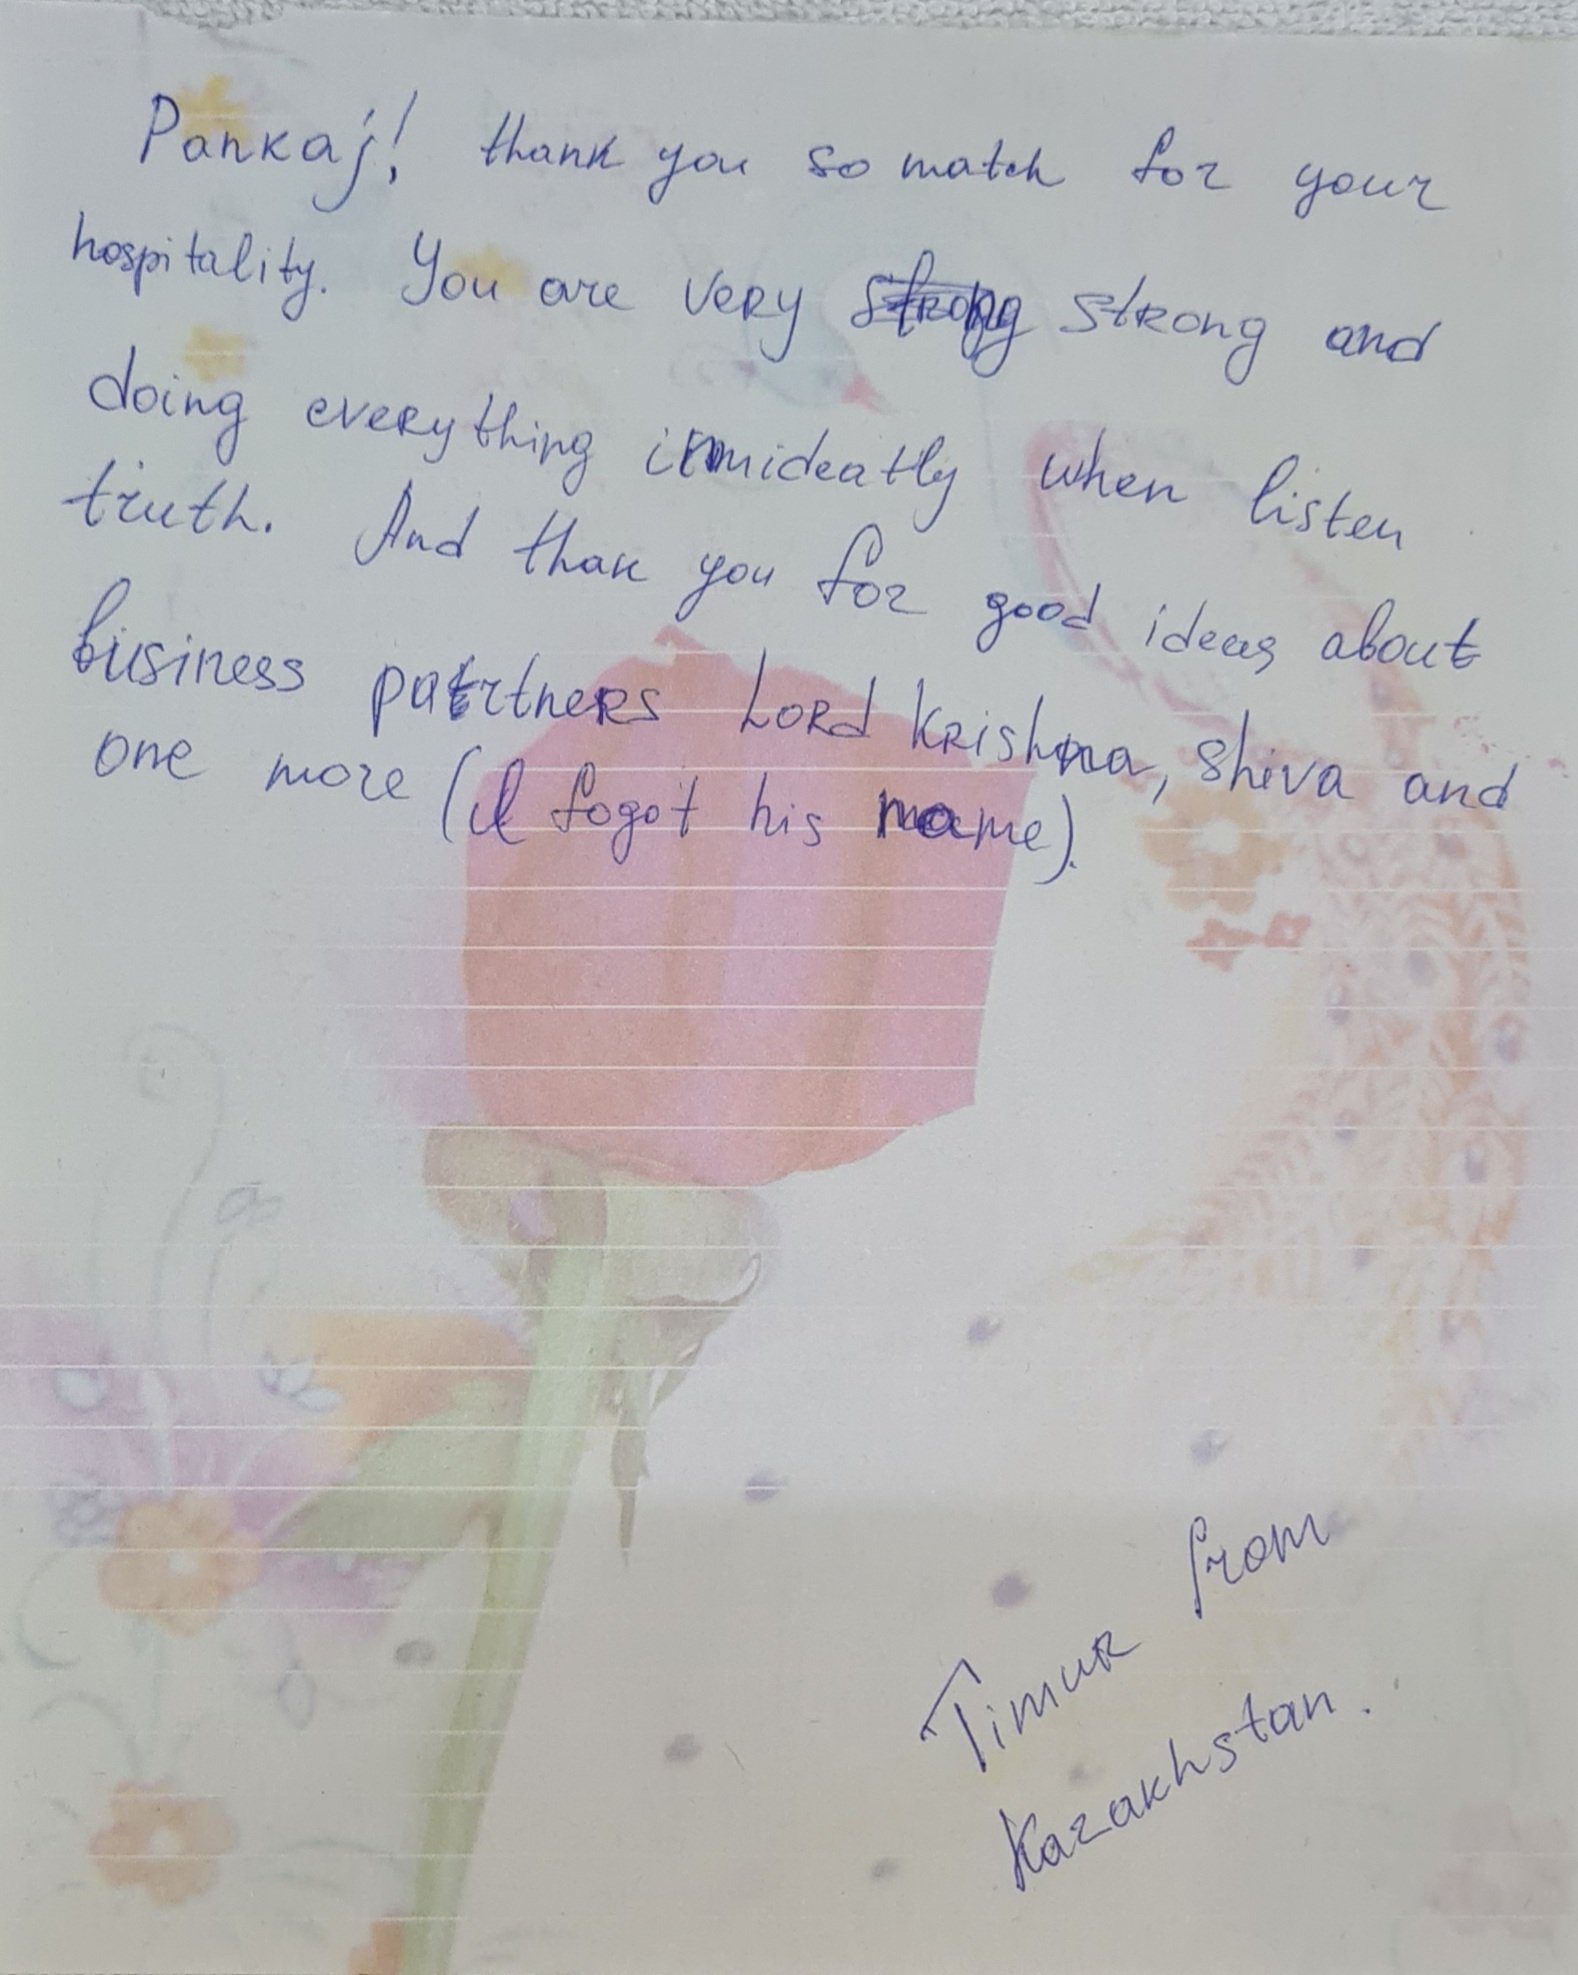 Pankaj! thank you so match for your
hospitality. You are very strong strong and
doing everything immideatly when listen
truth. And thank you for good ideas about
business partners Lord Krishna, Shiva and
one more (I fogot his name).
Timur from
Kazakhstan.